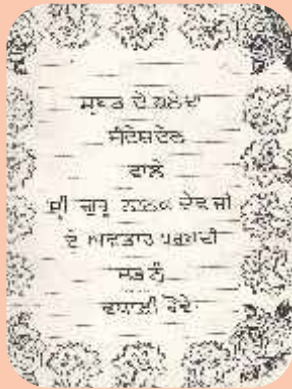 ਸਰਬਤ ਦੇ ਭਲੇ ਦਾ
ਸੰਦੇਸ਼ ਦੇਣ
ਵਾਲੇ
ਸ੍ਰੀ ਗੁਰੂ ਨਾਨਕ ਦੇਵ ਜੀ
ਦੇ ਅਵਤਾਰ ਪੁਰਬ ਦੀ
ਸਭ ਨੂੰ
ਵਧਾਈ ਹੋਵੇ